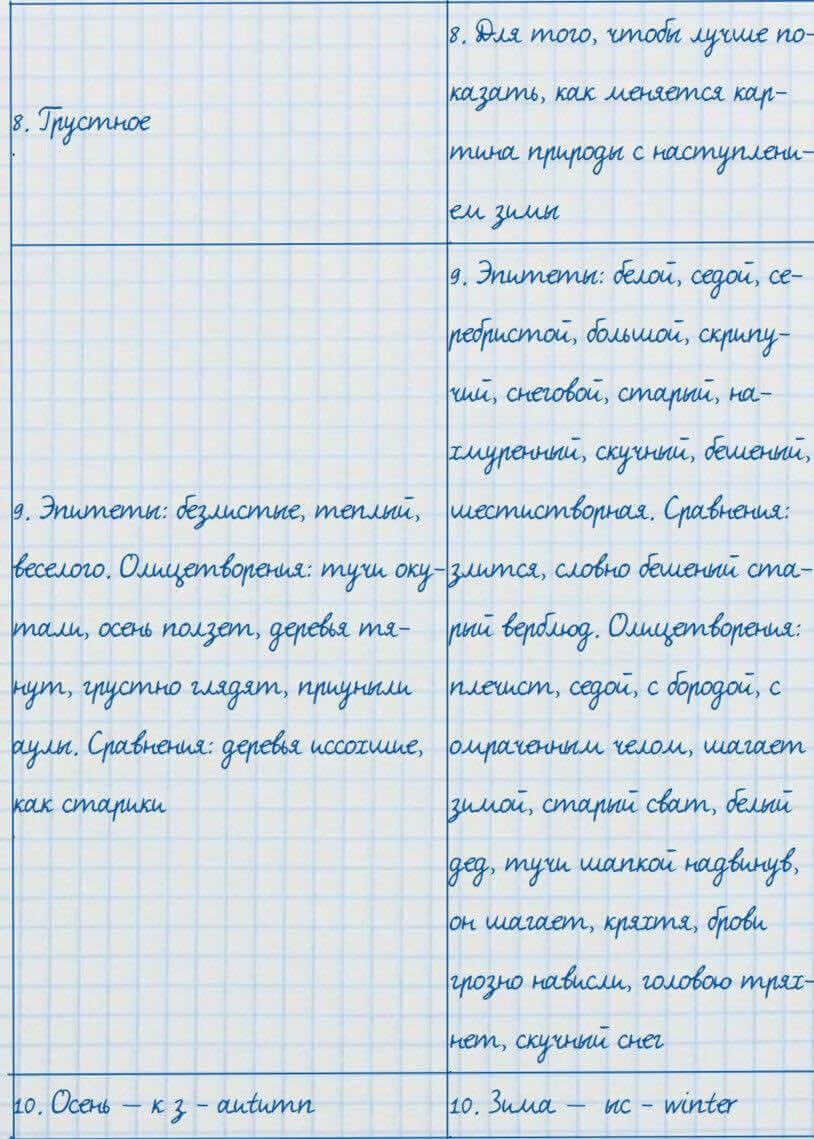 8. Грустное
8. Для того, чтобы лучше по-
казать, как меняется кар-
тина природы с наступлени-
ем зимы
9. Эпитеты: безлистые, теплый,
веселого. Олицетворения: тучи оку-
тали, осень ползет, деревья тя-
нут, грустно глядят, приуныли
аулы. Сравнения: деревья иссохшие,
как старики
9. Эпитеты: белой, седой, се-
ребристой, большой, скрипу-
чий, снеговой, старый, на-
хмуренный, скучный, бешеный,
шестистворная. Сравнения:
злится, словно бешеный ста-
рый верблюд. Олицетворения:
плечист, седой, с бородой, с
омраченным челом, шагает
зимой, старый сват, белый
дед, тучи шапкой надвинув,
он шагает, кряхтя, брови
грозно нависли, головою трях-
нет, скучный снег
10. Осень — к з - autumn
10. Зима — ыс - winter